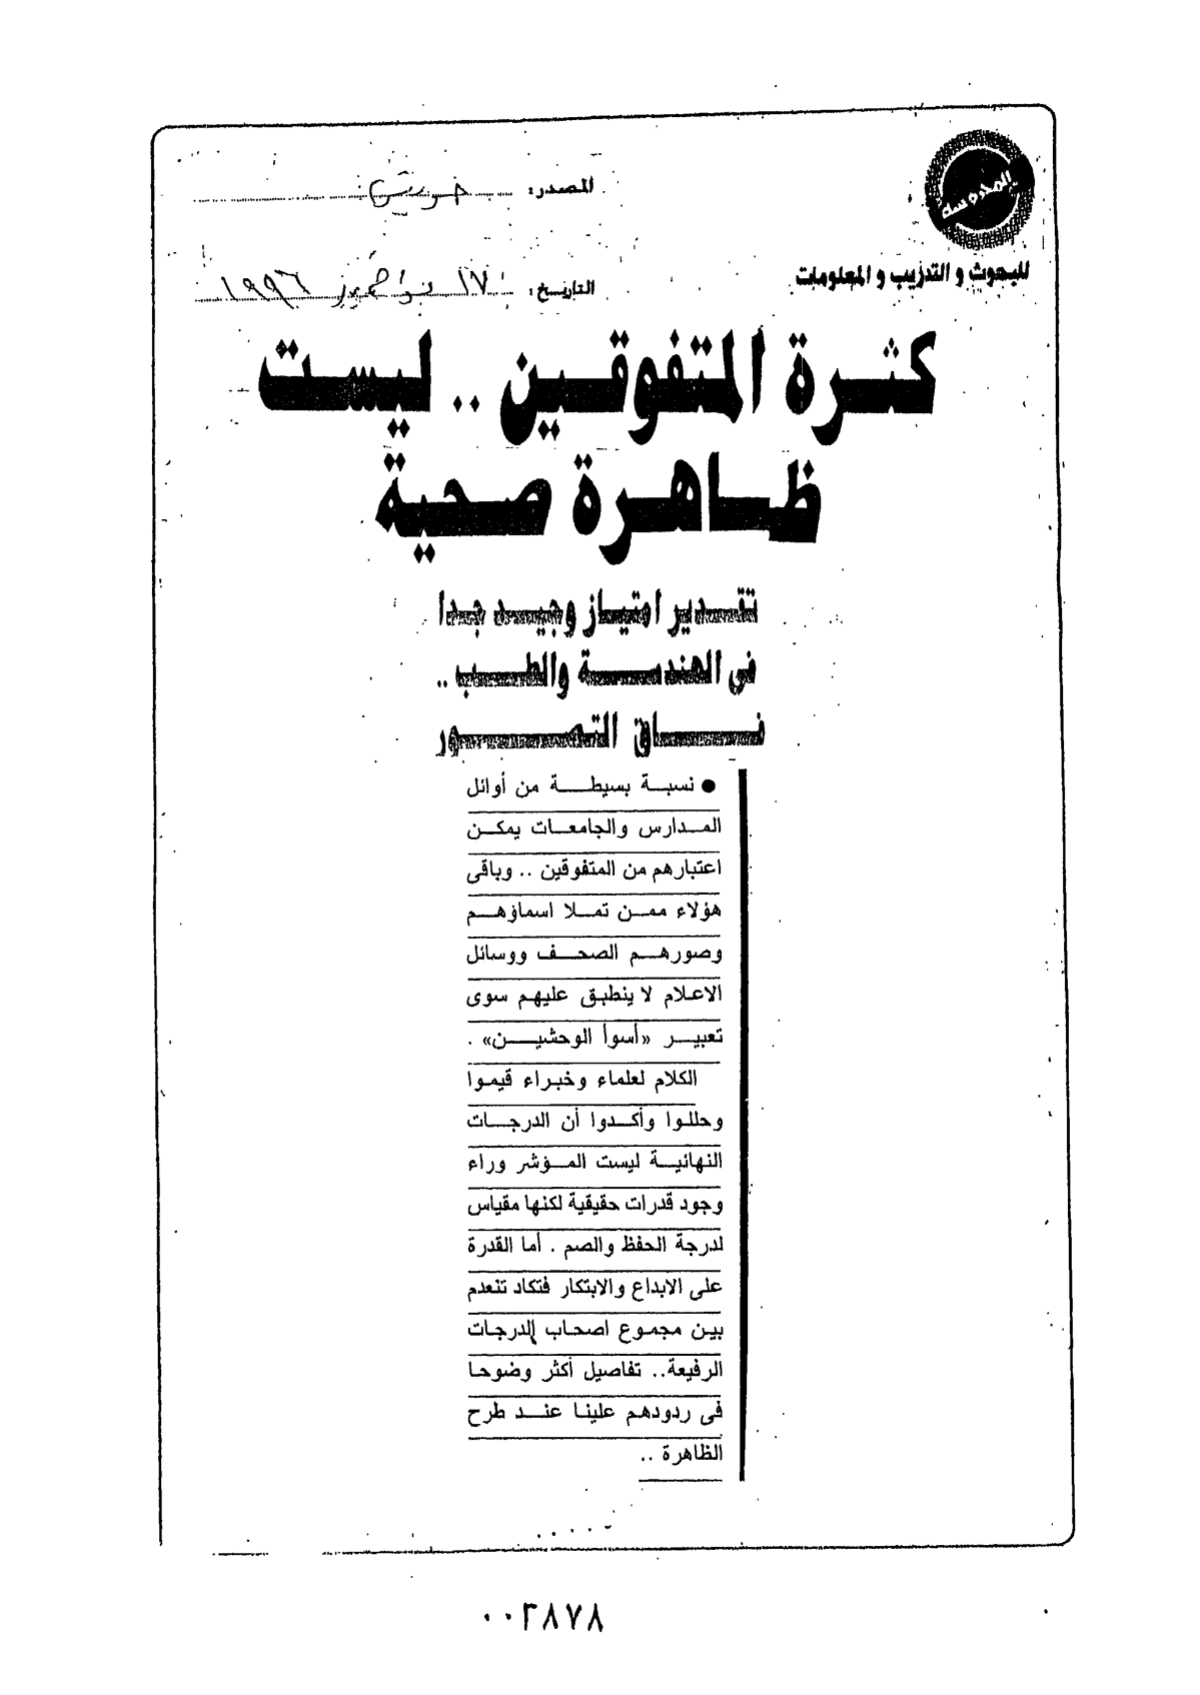 المحروسة
للبحوث و التدريب و المعلومات
المصدر:
التاريخ: ١٧ نوفمبر ١٩٩٦
كثرة المتفوقين .. ليست
ظاهرة صحية
تقدير امتياز وجيد جدا
فى الهندسة والطب ..
فاق التصور
● نسبة بسيطة من أوائل
المدارس والجامعات يمكن
اعتبارهم من المتفوقين .. وباقى
هؤلاء ممن تملا اسماؤهم
وصورهم الصحف ووسائل
الاعلام لا ينطبق عليهم سوى
تعبير «أسوأ الوحشين» .
الكلام لعلماء وخبراء قيموا
وحللوا وأكدوا أن الدرجات
النهائية ليست المؤشر وراء
وجود قدرات حقيقية لكنها مقياس
لدرجة الحفظ والصم . أما القدرة
على الابداع والابتكار فتكاد تنعدم
بين مجموع اصحاب الدرجات
الرفيعة.. تفاصيل أكثر وضوحا
فى ردودهم علينا عند طرح
الظاهرة ..
٠٠٣٨٧٨